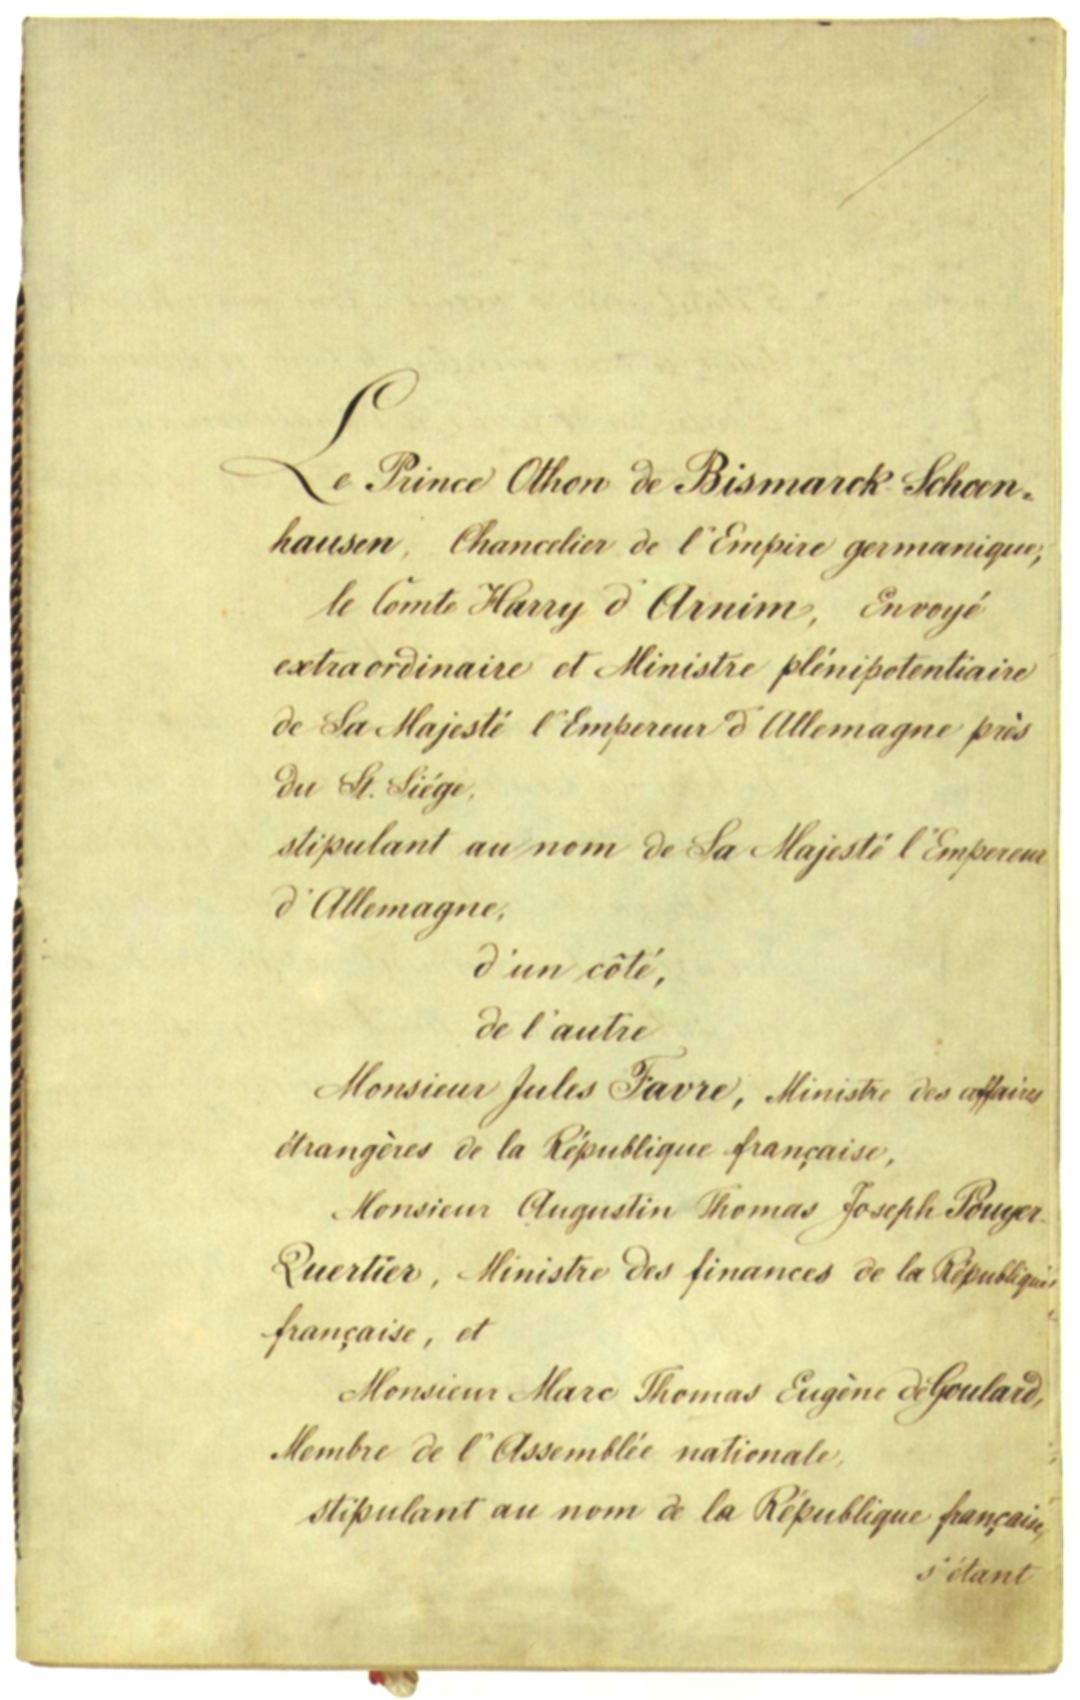 Le Prince Othon de Bismarck-Schoen-
hausen, Chancelier de l'Empire germanique,
le Comte Harry d'Arnim, Envoyé
extraordinaire et Ministre plénipotentiaire
de Sa Majesté l'Empereur d'Allemagne près
du St. Siége,
stipulant au nom de Sa Majesté l'Empereur
d'Allemagne,
d'un côté,
de l'autre
Monsieur Jules Favre, Ministre des affaires
étrangères de la République française,
Monsieur Augustin Thomas Joseph Pouyer-
Quertier, Ministre des finances de la République
française, et
Monsieur Marc Thomas Eugène de Goulard,
Membre de l'Assemblée nationale,
stipulant au nom de la République française,
s'étant